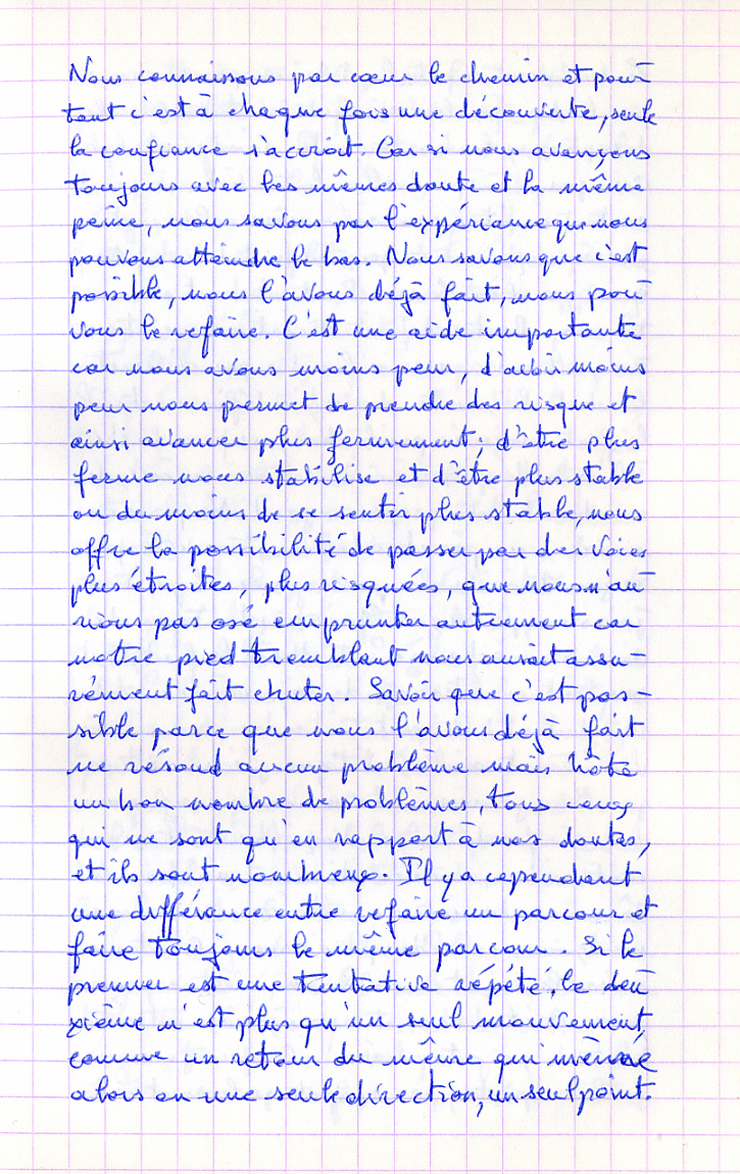 Nous connaissons par cœur le chemin et pour-
tant c'est à chaque fois une découverte, seule
la confiance s'accroit. Car si nous avançons
toujours avec les mêmes doute et la même
peine, nous savons par l'expériance que nous
pouvons atteindre le bas. Nous savons que c'est
possible, nous l'avons déjà fait, nous pou-
vons le refaire. C'est une aide importante
car nous avons moins peur, d'avoir moins
peur nous permet de prendre des risque et
ainsi avancer plus fermement; d'être plus
ferme nous stabilise et d'être plus stable
ou du moins de se sentir plus stable, nous
offre la possibilité de passer par des voies
plus étroites, plus risquées, que nous n'au-
rions pas osé emprunter autrement car
notre pied tremblant nous aurait assu-
rément fait chuter. Savoir que c'est pos-
sible parce que nous l'avons déjà fait
ne résoud aucun problème mais hôte
un bon nombre de problèmes, tous ceux
qui ne sont qu'en rapport à nos doutes,
et ils sont nombreux. Il y a cependant
une différance entre refaire un parcour et
faire toujours le même parcour. Si le
premier est une tentative répété, le deu-
xième n'est plus qu'un seul mouvement,
comme un retour du même qui mène
alors en une seule direction, un seul point.